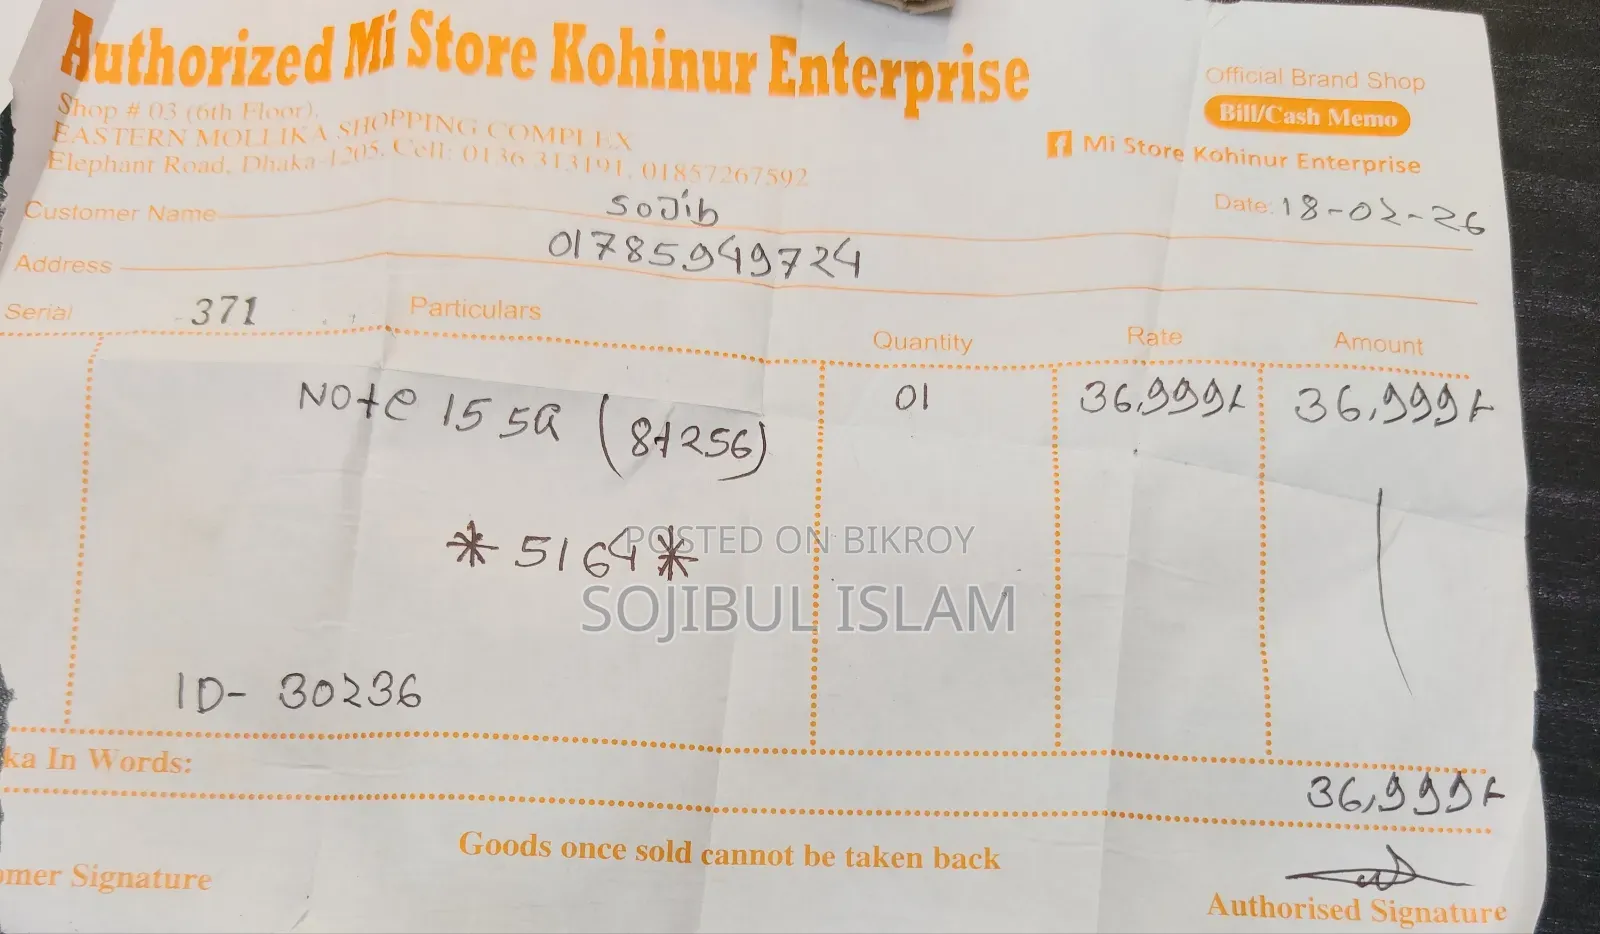 Authorized Mi Store Kohinur Enterprise
Shop # 03 (6th Floor),
EASTERN MOLLIKA SHOPPING COMPLEX
Elephant Road, Dhaka-1205, Cell: 0136 313191, 01857267592
Official Brand Shop
Bill/Cash Memo
Mi Store Kohinur Enterprise
Date: 18-02-26
Customer Name Sojib
01785949724
Address
Serial 371 Particulars Quantity Rate Amount
Note 15 5G (8+256) 01 36,999/- 36,999/-
*5164*
POSTED ON BIKROY
SOJIBUL ISLAM
ID- 30236
ka In Words: 36,999/-
Goods once sold cannot be taken back
omer Signature
Authorised Signature